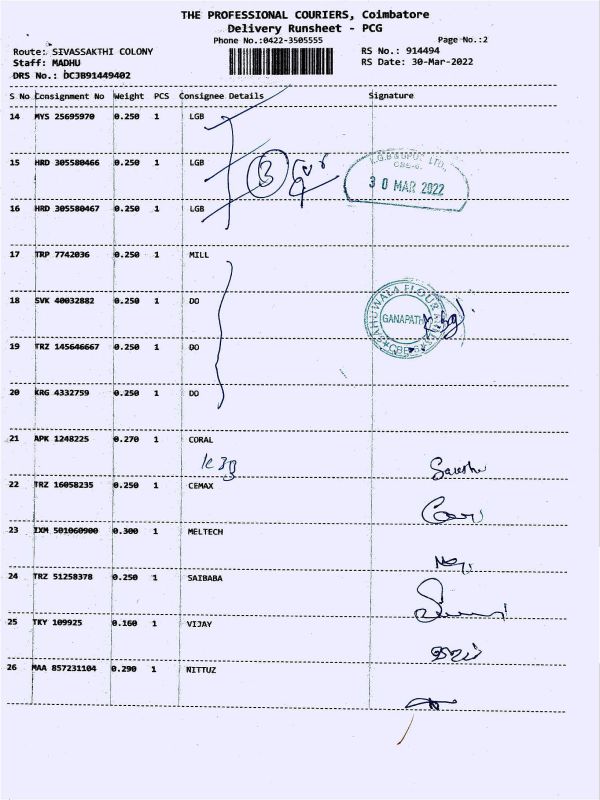 THE PROFESSIONAL COURIERS, Coimbatore
Delivery Runsheet - PCG
Phone No.:0422-3505555 Page No.:2
Route: SIVASSAKTHI COLONY RS No.: 914494
Staff: MADHU RS Date: 30-Mar-2022
DRS No.: DCJB91449402
S No Consignment No Weight PCS Consignee Details Signature
14 MYS 25695970 0.250 1 LGB
15 HRD 305580466 0.250 1 LGB
3
L.G.B & BROS LTD.,
CBE-6.
30 MAR 2022
16 HRD 305580467 0.250 1 LGB
17 TRP 7742036 0.250 1 MILL
18 SVK 40032882 0.250 1 DO
FLOUR
GANAPATHY
CBE-6
19 TRZ 145646667 0.250 1 DO
20 KRG 4332759 0.250 1 DO
21 APK 1248225 0.270 1 CORAL
22 TRZ 16058235 0.250 1 CEMAX
23 IXM 501060900 0.300 1 MELTECH
24 TRZ 51258378 0.250 1 SAIBABA
25 TKY 109925 0.160 1 VIJAY
26 MAA 857231104 0.290 1 NITTUZ